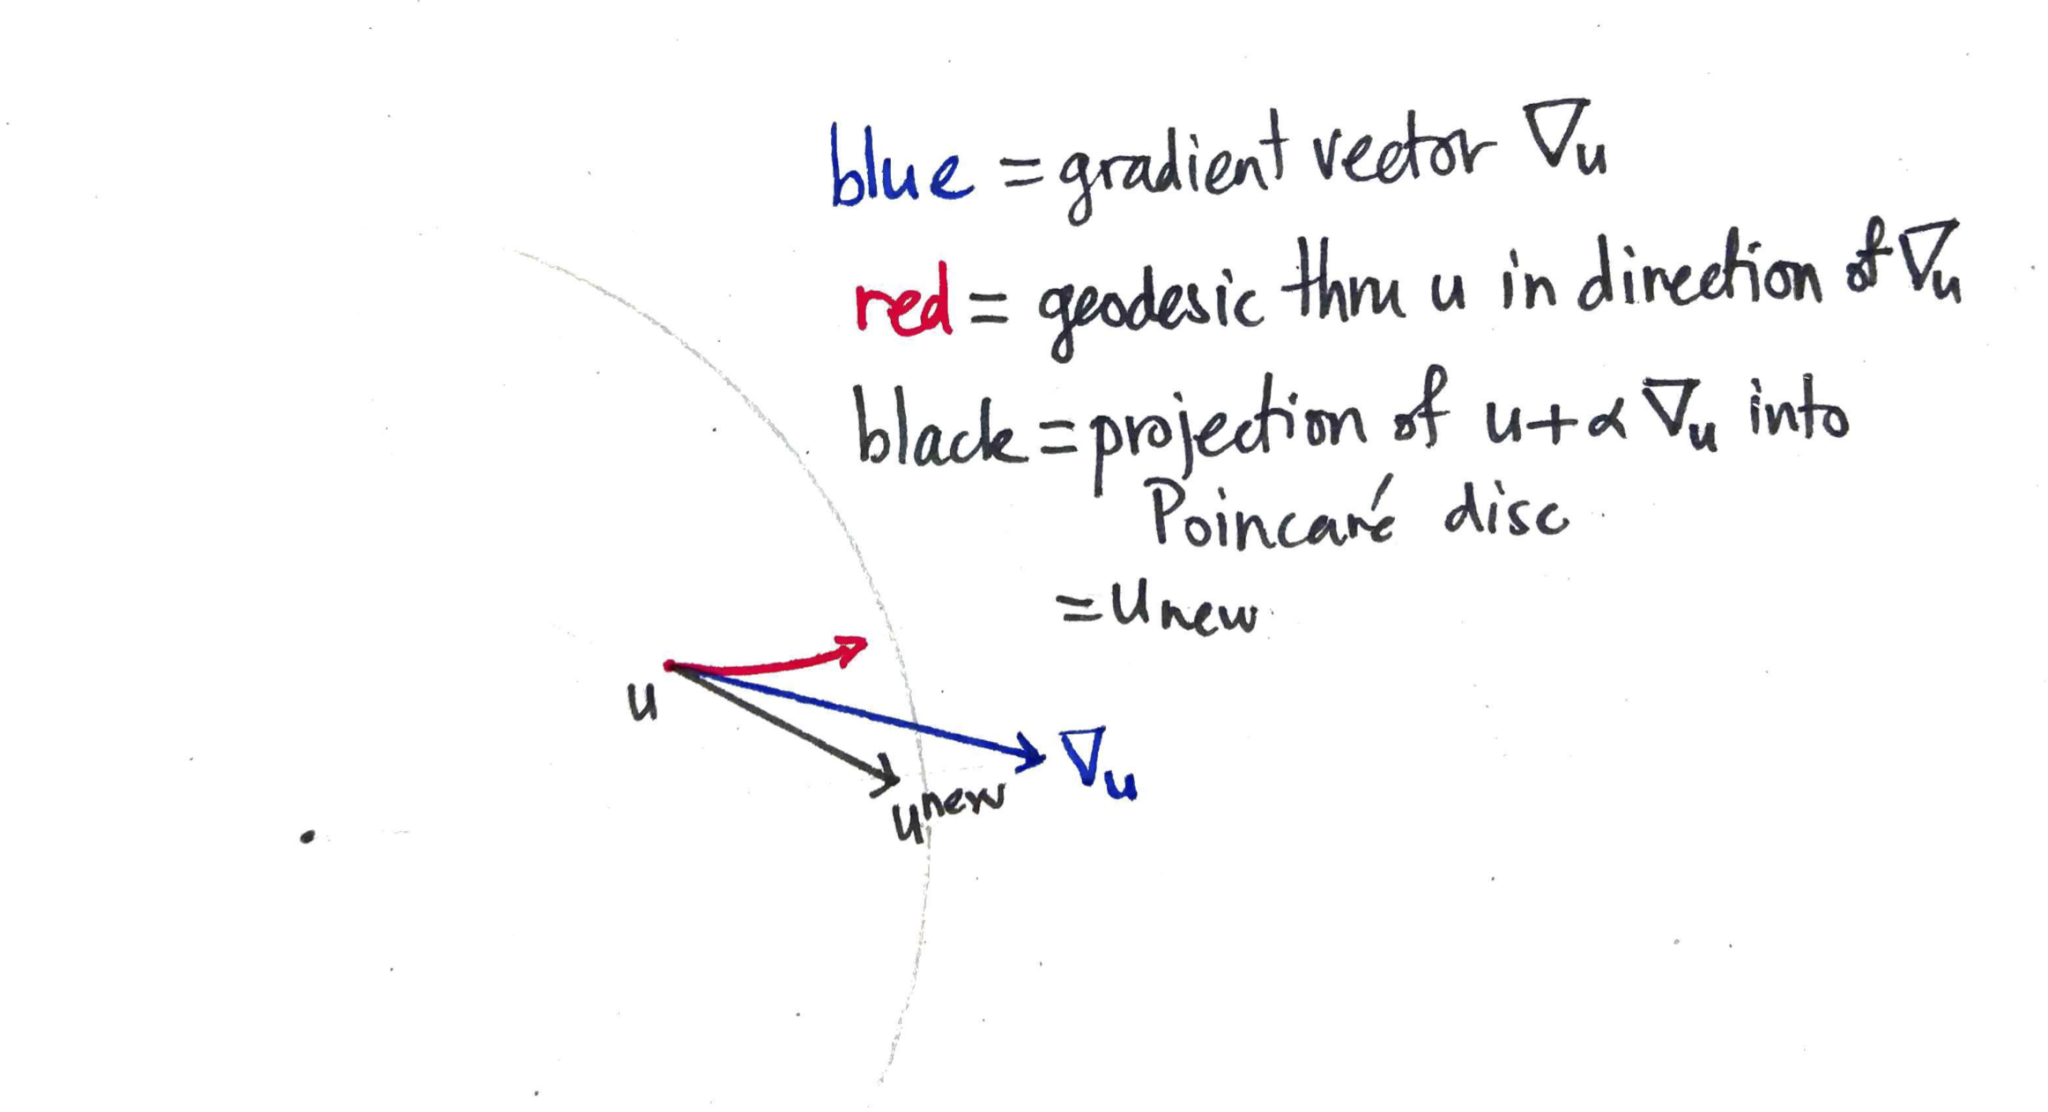 blue = gradient vector ∇u
red = geodesic thru u in direction of ∇u
black = projection of u+α ∇u into
Poincaré disc
= unew
u
∇u
u new